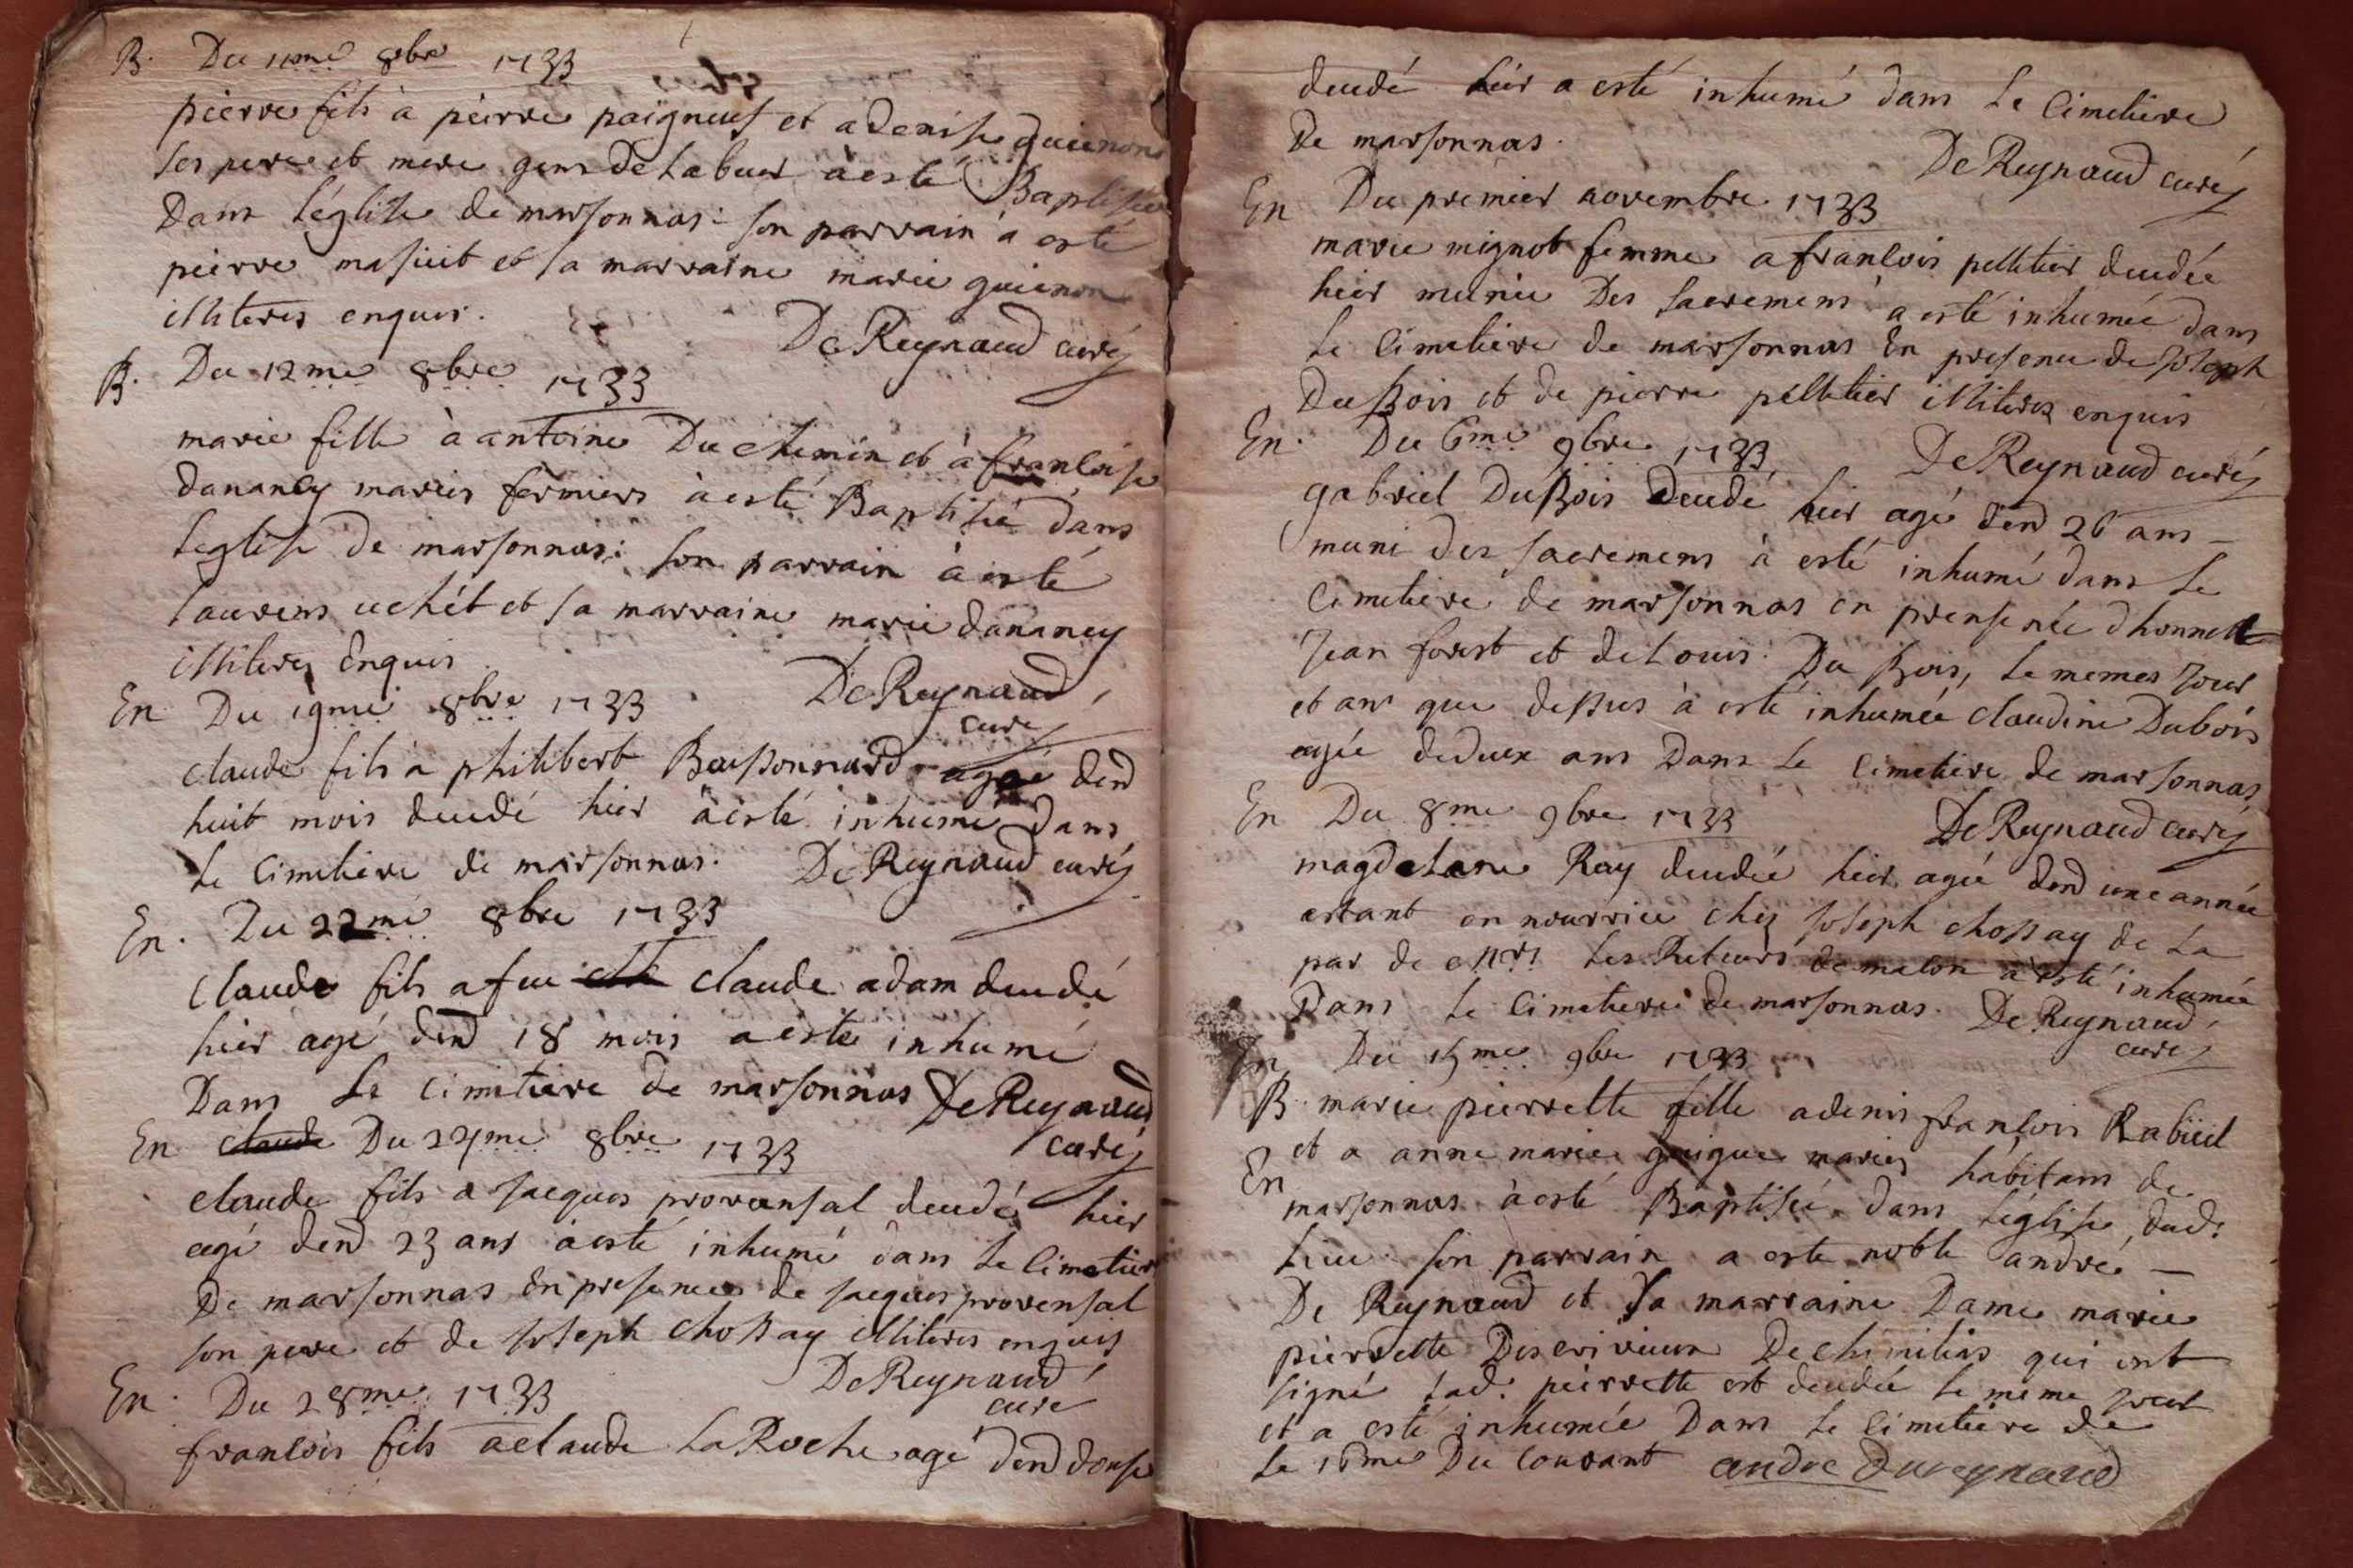 B. Du 11me 8bre 1733
pierre fils à peirre paigneuf et a denise guienon
ses pere et mere gens de labeur à esté Baptisée
Dans l'églisse de marsonnas: son parrain à esté
peirre masuit et sa marraine marie guienon
illiteres enquis.
De Reynaud curé
B. Du 12me 8bre 1733
marie fille à antoine Du chemin et à franloise
dananey mariés fermiers à esté Baptisée dans
leglise de marsonnas: son parrain à esté
laurens uchét et sa marraine marie dananey
illiteres Enquis
De Reynaud,
curé
En Du 19me 8bre 1733
claude fils a philibert Buissonnard agé denv
huit mois deudé hier à esté inhumé dans
le Cimetiere de marsonnas.
De Reynaud curé
En. Du 22me 8bre 1733
Claude fils a feu claude adam deudé
hier agé denv 18 mois a esté inhumé
Dans le Cimetiere de marsonnas De Reynaud
curé
En claude Du 24me 8bre 1733
claude fils a jacques provensal deudé hier
agé denv 23 ans à esté inhumé dans le Cimetier
De marsonnas En presence de jacques provensal
son pere et de joseph chossay illiteres enquis
De Reynaud
curé
En. Du 28me 1733
franlois fils a claude LaRoche agé denv douse
deudé hier a esté inhumé dans le Cimetiere
De marsonnas.
De Reynaud curé
En Du premier novembre 1733
marie mignot femme a franlois pelletier deudée
hier munie Des sacremens a esté inhumée dans
le Cimetiere de marsonnas En presence de joseph
DuBois et de pierre pelletier illiteres enquis
De Reynaud curé
En. Du 6me 9bre 1733
gabriel DuBois Deudé hier agé denv 26 ans —
muni des sacremens à esté inhumé dans le
Cimetiere de marsonnas en prensence d'honnete
Jean forest et de Louis Du Bois, le memes jour
et ans que dessus à esté inhumée Claudine Dubois
agée dedeux ans Dans le Cimetiere de marsonnas
De Reynaud curé
En Du 8me 9bre 1733
magdelane Ray deudée hier agée denv une année
estant en nourrice chez joseph chossay de La
par de les Recteurs de macon à esté inhumée
Dans le Cimetiere de marsonnas. De Reynaud
curé
En Du 15me 9bre 1733
B marie peirrette fille a denis franlois Rabüel
et a anne marie guigue mariés habitans de
En marsonnas à esté Baptisée dans l'églisse dud.
lieu son parrain a esté noble andré —
De Reynaud et Sa marraine Dame marie
pierrette Descrivieux De chiminias qui ont
signé lad. peirrette est deudée le meme jour
et a esté inhumée Dans le Cimetiere de
le 16me Du Courant andre Dereynaud